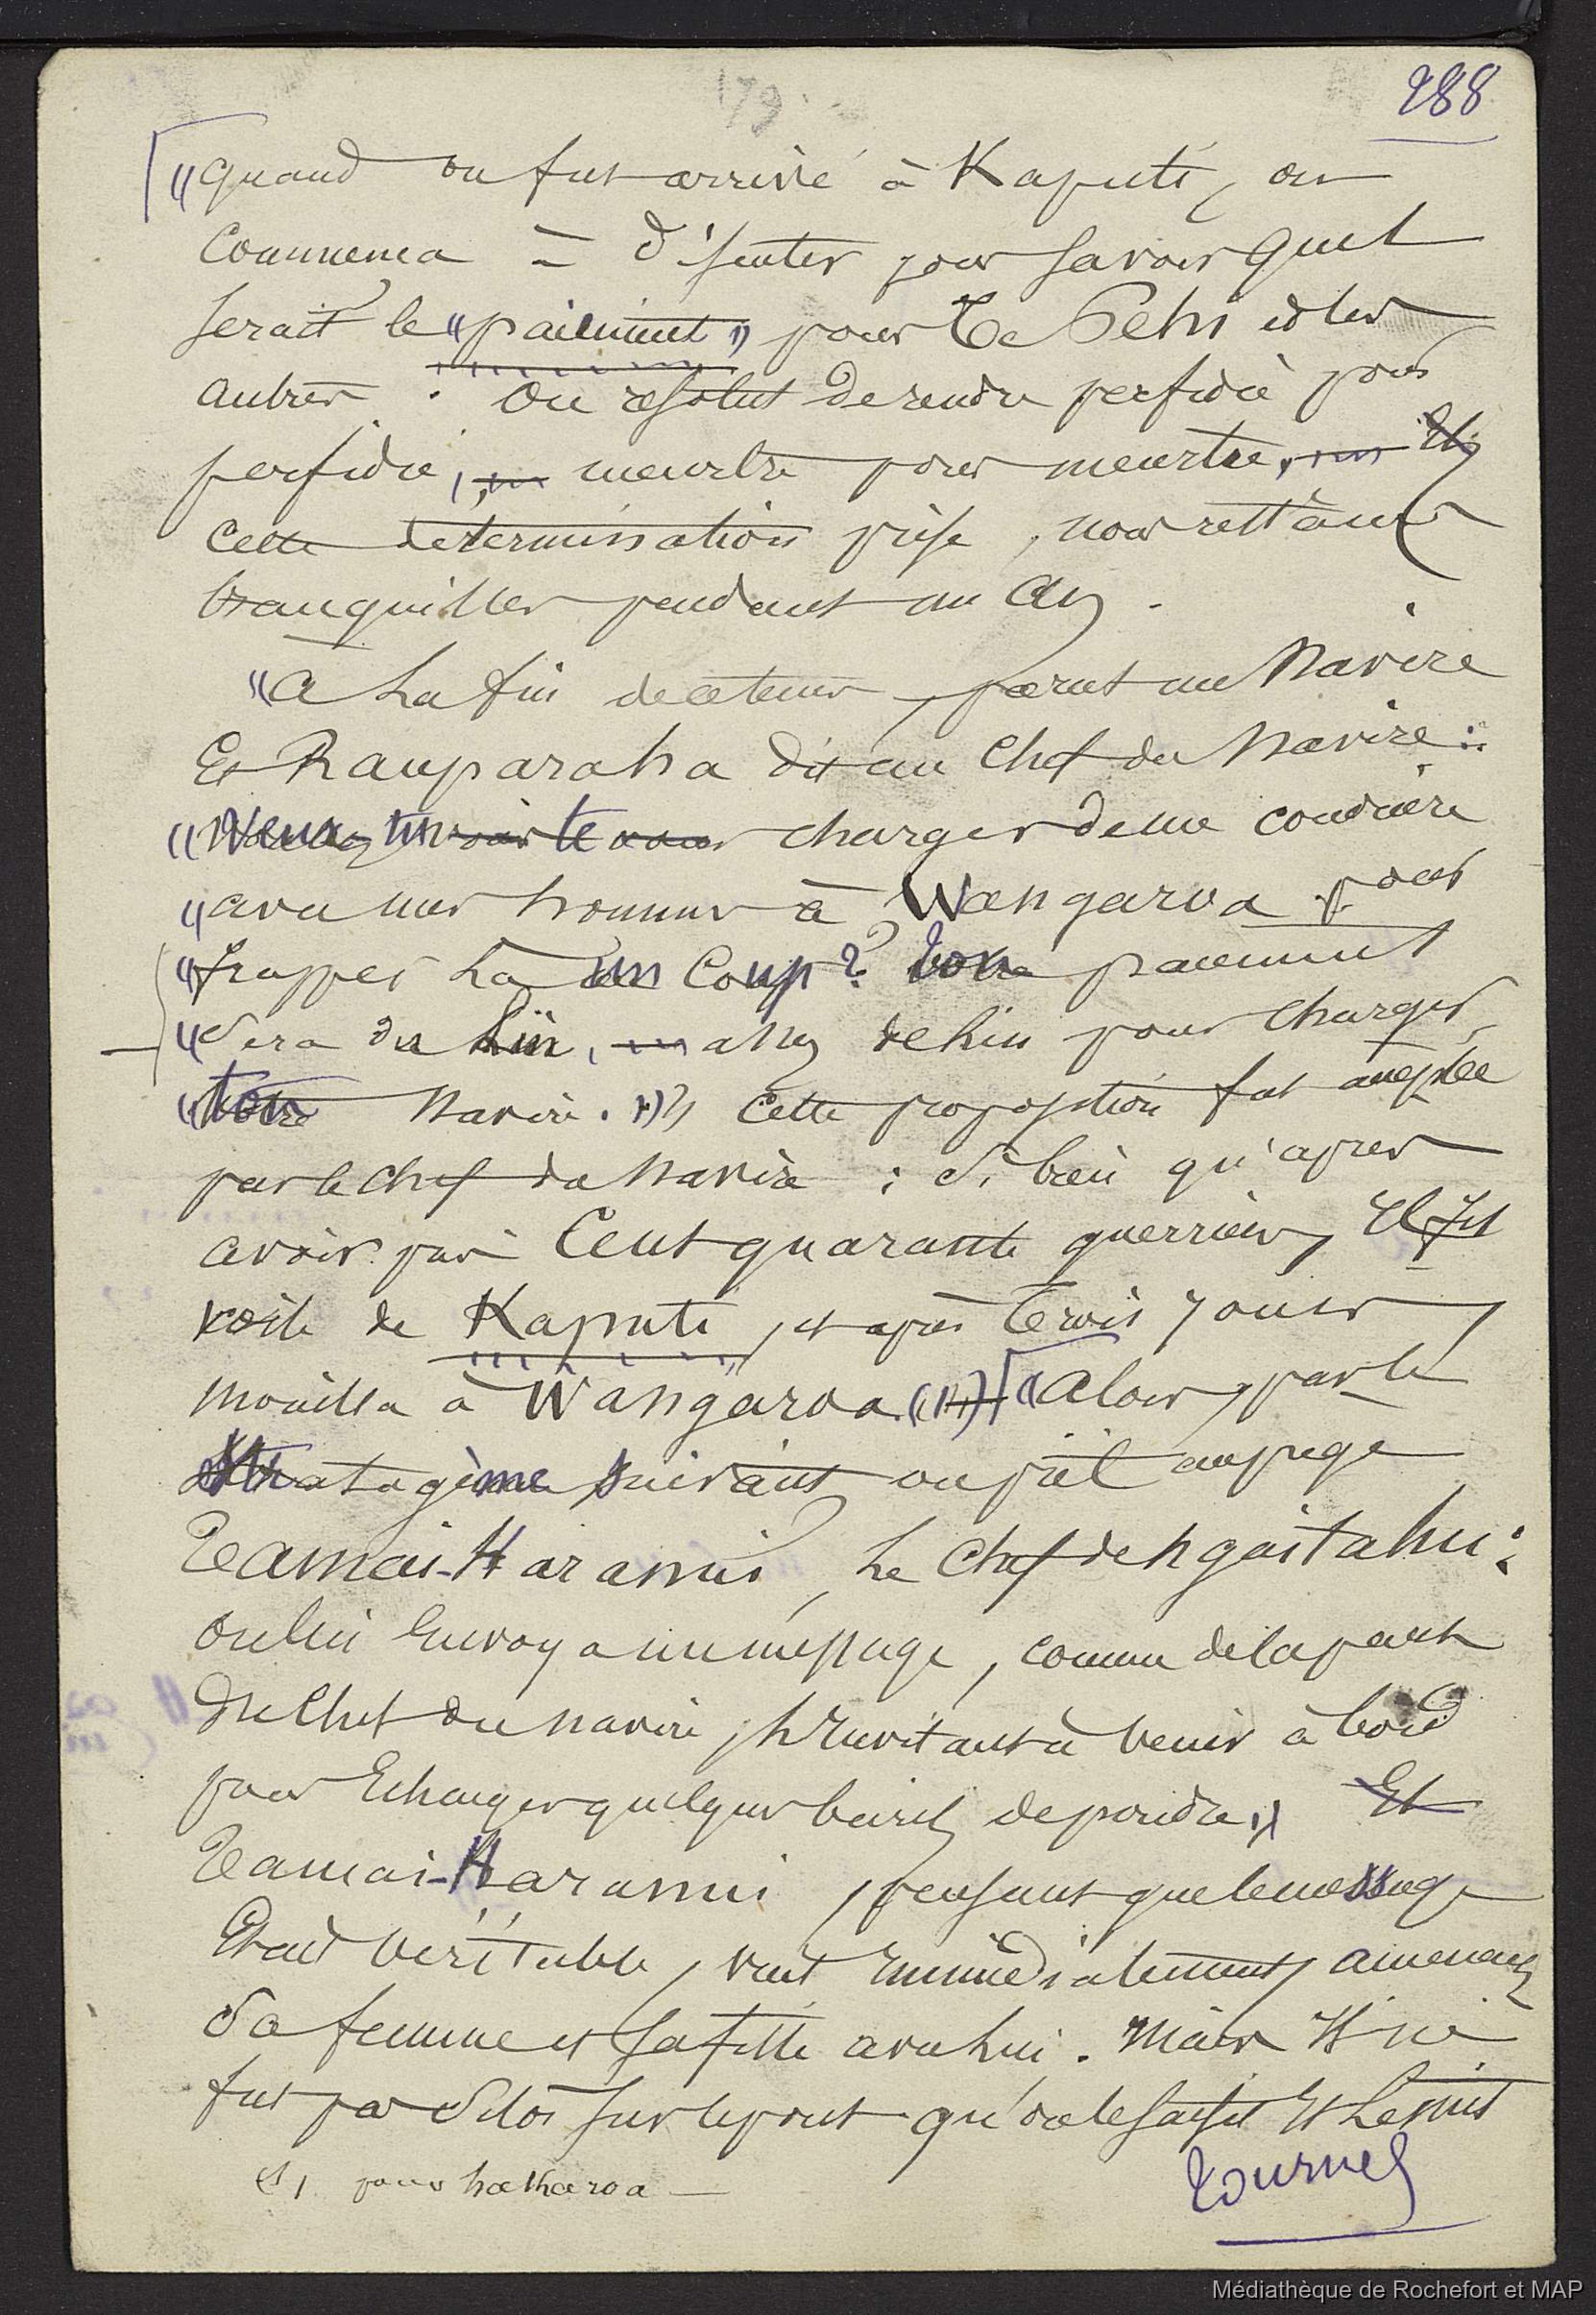 179
288
"quand on fut arrivé à Kaputi, on
commença à discuter pour savoir quel
serait le "paiement" pour Te Pehi et les
autres : On résolut de rendre perfidie pour
perfidie, — meurtre pour meurtre, — Et,
cette détermination prise, nous restâmes
tranquilles pendant un an.
"à la fin de ce temps, parut un Navire
Et Rauparaha dit au Chef du Navire :
"Veux-tu te charger de me conduire
"avec mes hommes à Wangaroa pour
"frapper là un Coup? ton paiement
"Sera du lin, — assez de lin pour charger
"ton Navire. » (1) Cette proposition fut acceptée
par le chef du Navire : Si bien qu'après
avoir pris Cent quarante guerriers, Il fit
voile de Kaputi, et après trois jours
mouilla à Wangaroa (1) "Alors, par le
stratagème suivant on prit au piège
Tamai-Haranui, le Chef de Ngaitahu :
on lui Envoya un message, comme de la part
du Chef du navire, l'Invitant à venir à bord
pour Echanger quelques barils de poudre, Et
Tamai-Haranui, pensant que le message
Etait véritable, vint Immédiatement, amenant
Sa femme et Sa fille avec lui. Mais Il ne
fut pas Sitôt sur le pont qu'on le saisit Et Le mit
(1) pour hakaroa —
Tournez
Médiathèque de Rochefort et MAP